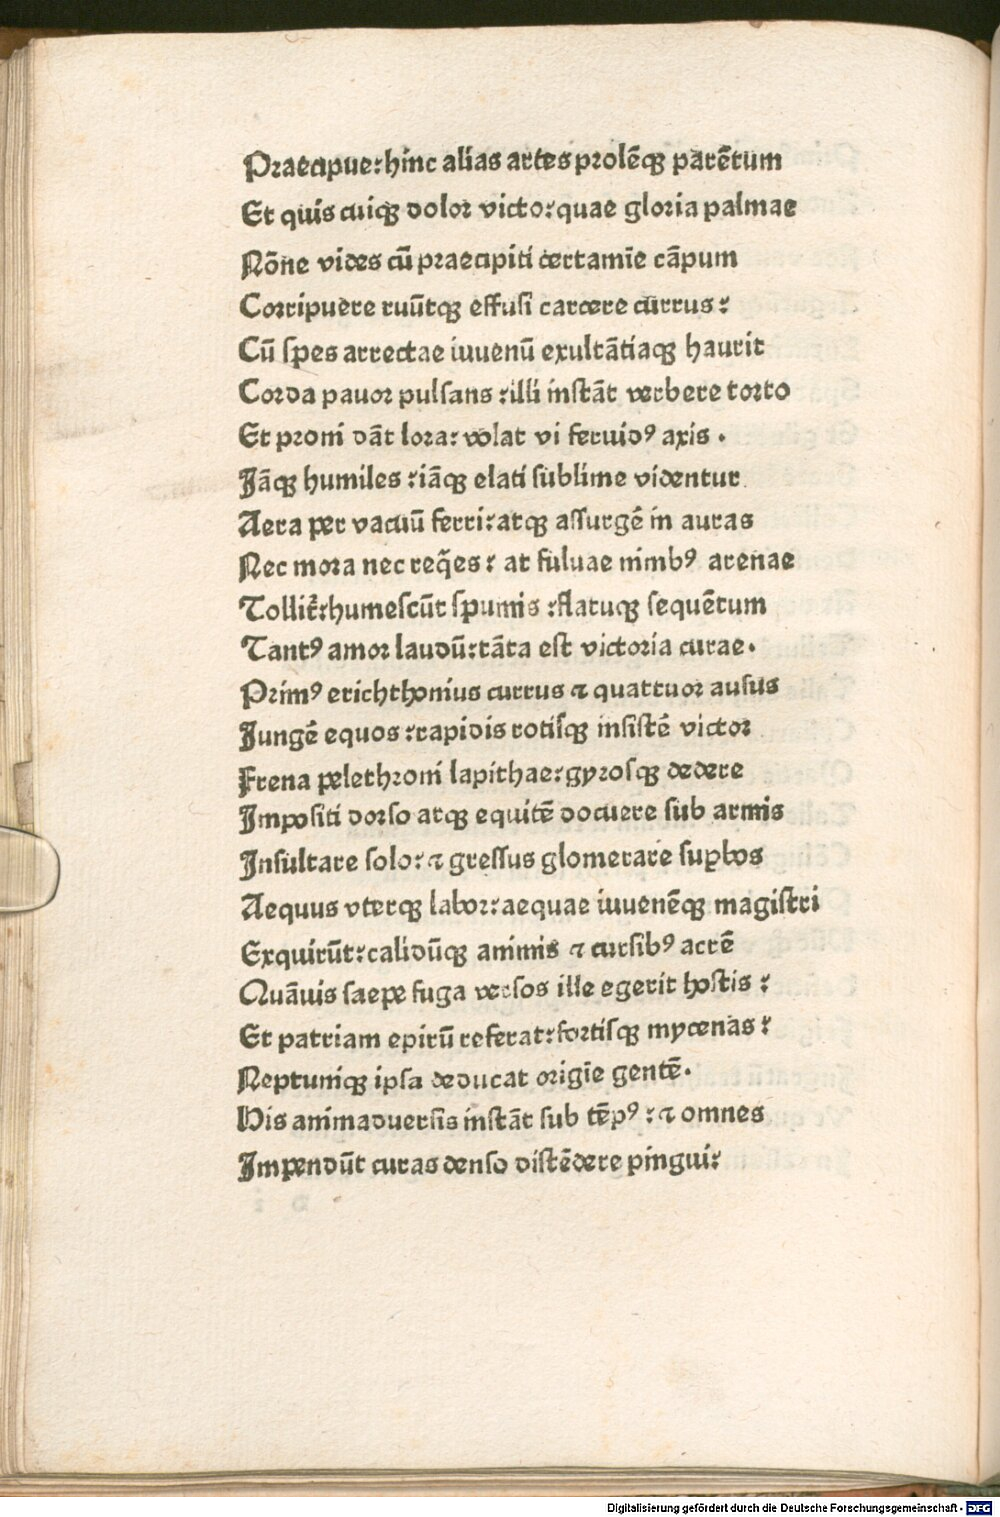 Praecipue: hinc alias artes prolēqꝫ parētum
Et quis cuiqꝫ dolor victo: quae gloria palmae
Nōne vides cū praecipiti certamīe cāpum
Corripuere ruūtqꝫ effusi carcere currus:
Cū spes arrectae iuuenū exultātiaqꝫ haurit
Corda pauor pulsans: illi instāt verbere torto
Et proni dāt lora: volat vi feruidꝰ axis.
Jāqꝫ humiles: iāqꝫ elati sublime videntur
Aera per vacuū ferri: atqꝫ assurgē in auras
Nec mora nec reqͥes: at fuluae nimbꝰ arenae
Tollit᷑: humescūt spumis: flatuqꝫ sequētum
Tantꝰ amor laudū: tāta est victoria curae.
Primꝰ erichthonius currus ⁊ quattuor ausus
Jungē equos: rapidis rotisqꝫ insistē victor
Frena pelethroni lapithae: gyrosqꝫ dedere
Impositi dorso atqꝫ equitē docuere sub armis
Insultare solo: ⁊ gressus glomerare suꝑbos
Aequus vterqꝫ labor: aequae iuuenēqꝫ magistri
Exquirūt: calidūqꝫ animis ⁊ cursibꝰ acrē
Quāuis saepe fuga versos ille egerit hostis:
Et patriam epirū referat: fortisqꝫ mycenas:
Neptuniqꝫ ipsa deducat origīe gentē.
His animaduersis instāt sub tēpꝰ: ⁊ omnes
Impendūt curas denso distēdere pingui:
Digitalisierung gefördert durch die Deutsche Forschungsgemeinschaft - DFG